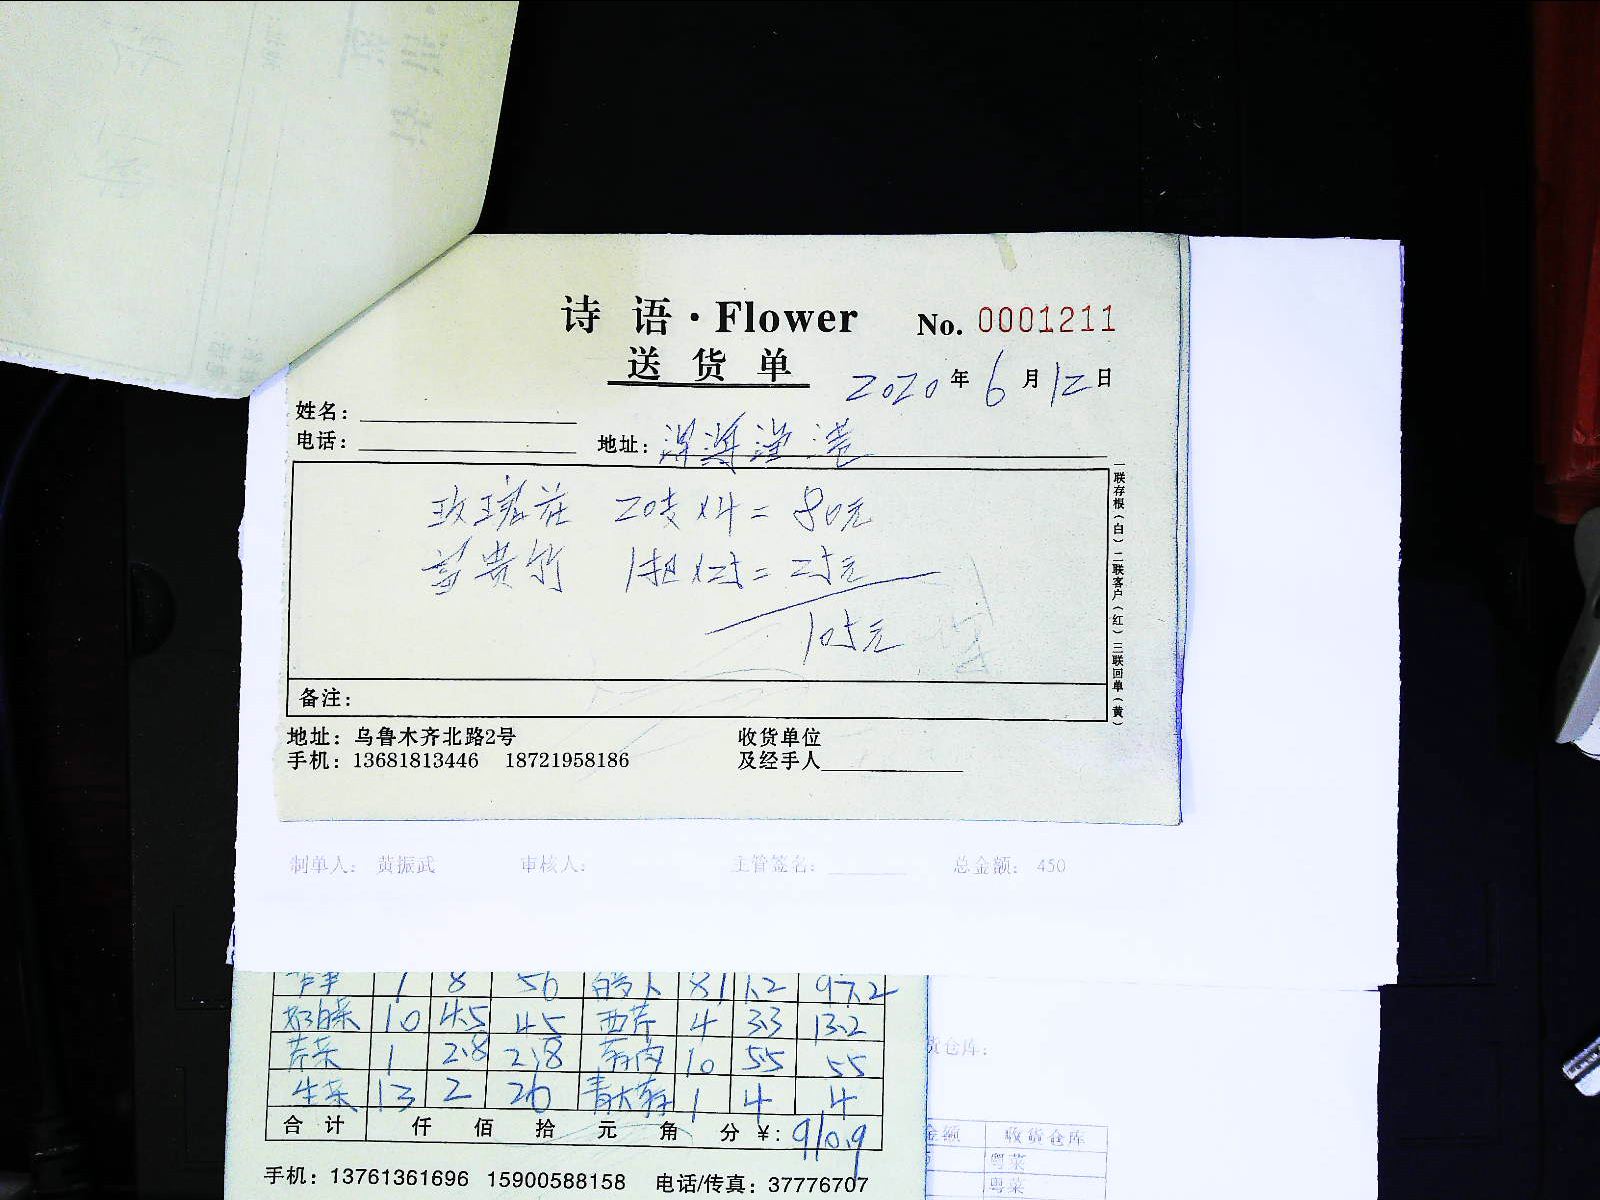 诗 语·Flower
No. 0001211
送 货 单
2020年6月12日
姓名：
电话：
地址：
玫瑰花 20支×4=80元
富贵竹 1扎×25=25元
105元
一联存根（白）二联客户（红）三联回单（黄）
备注：
地址：乌鲁木齐北路2号
收货单位
手机：13681813446 18721958186
及经手人
制单人： 黄振武 审核人： 主管签名： 总金额： 450
1 8 56 白萝卜 81 1.2 97.2
奶白菜 10 4.5 45 西芹 4 3.3 13.2
芹菜 1 2.8 2.8 10 5.5 55
生菜 13 2 26 1 4 4
货仓库：
合 计 仟 佰 拾 元 角 分 ¥: 910.9
金额 收货仓库
粤菜
粤菜
手机：13761361696 15900588158 电话/传真：37776707